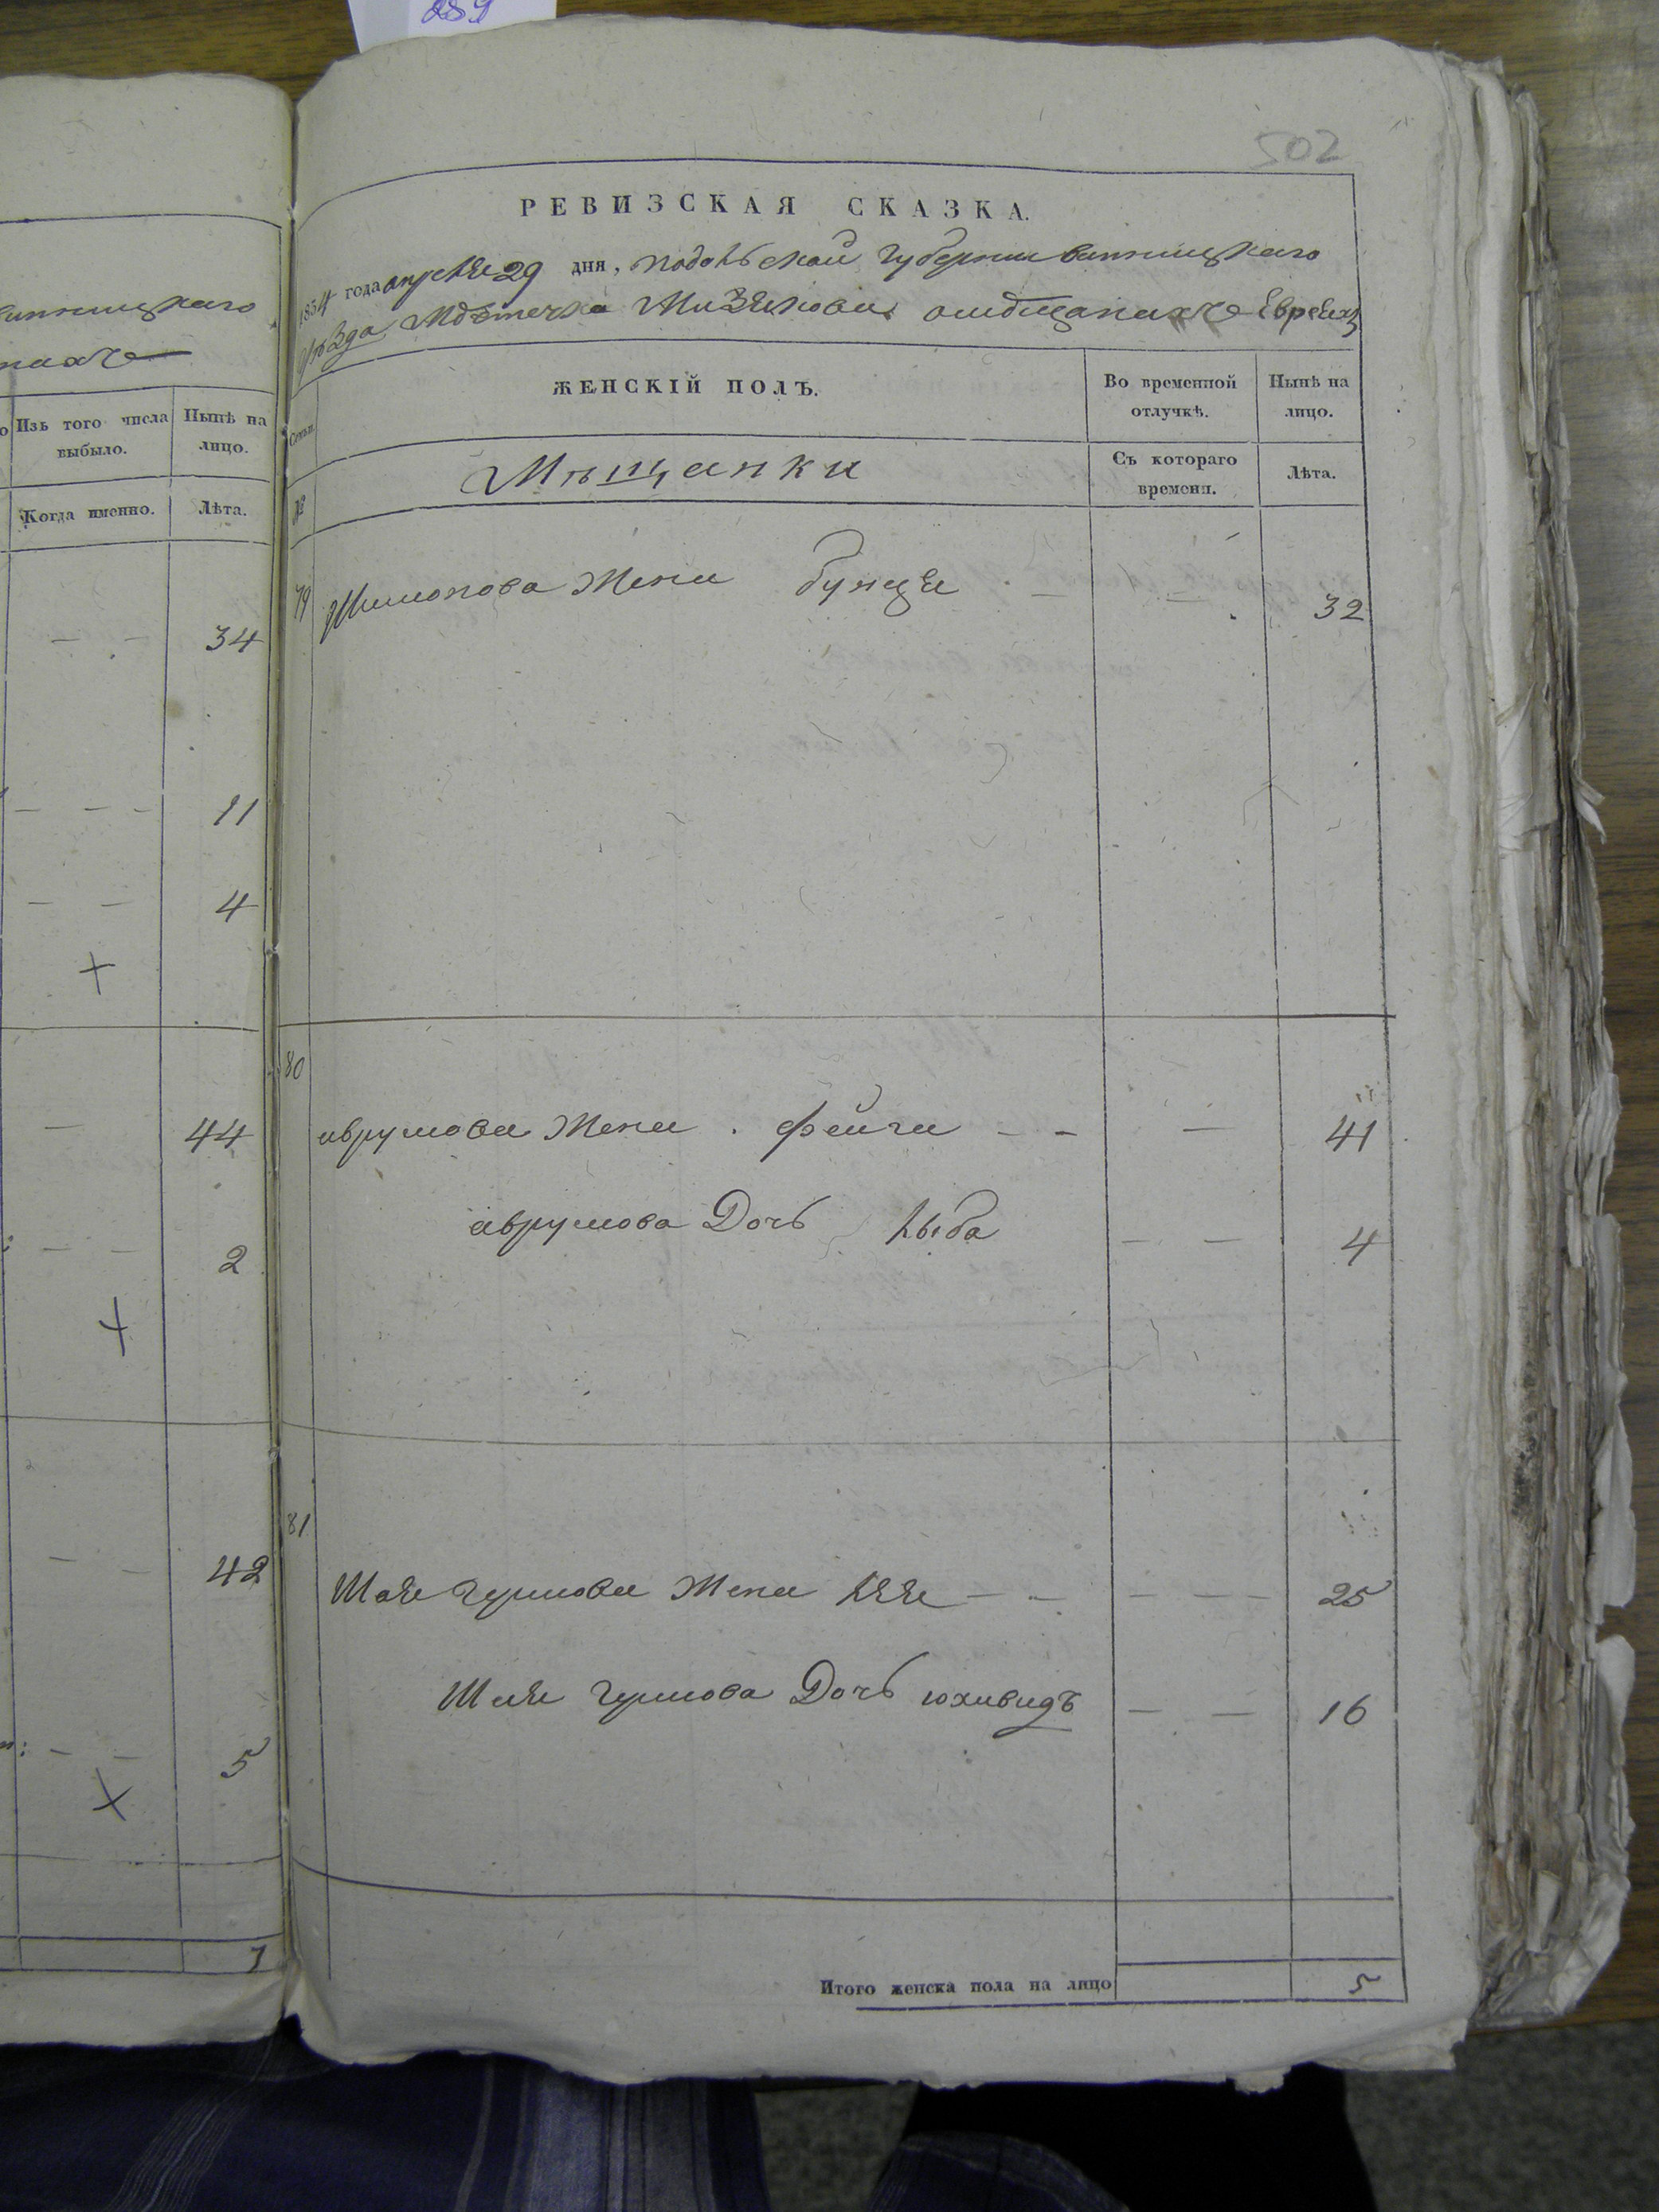 289
502
РЕВИЗСКАЯ СКАЗКА.
1854 года апреля 29 дня, Подольской Губернии Винницкаго
уѣзда Мѣстечка Мизякова омѣщанахъ Евреяхъ
винницкаго
Изъ того числа выбыло.
Нынѣ на лицо.
Когда именно.
Лѣта.
Семьи.
ЖЕНСКІЙ ПОЛЪ.
Во временной отлучкѣ.
Нынѣ на лицо.
№
Мѣщанки
Съ котораго времени.
Лѣта.
34
11
4
44
2
42
5
7
79 Шимонова Жена бунця 32
80
аврумова Жена фейга 41
аврумова Дочь хыба 4
81
Шая Жена хая 25
Шая Дочь юхивидъ 16
Итого женска пола на лицо 5